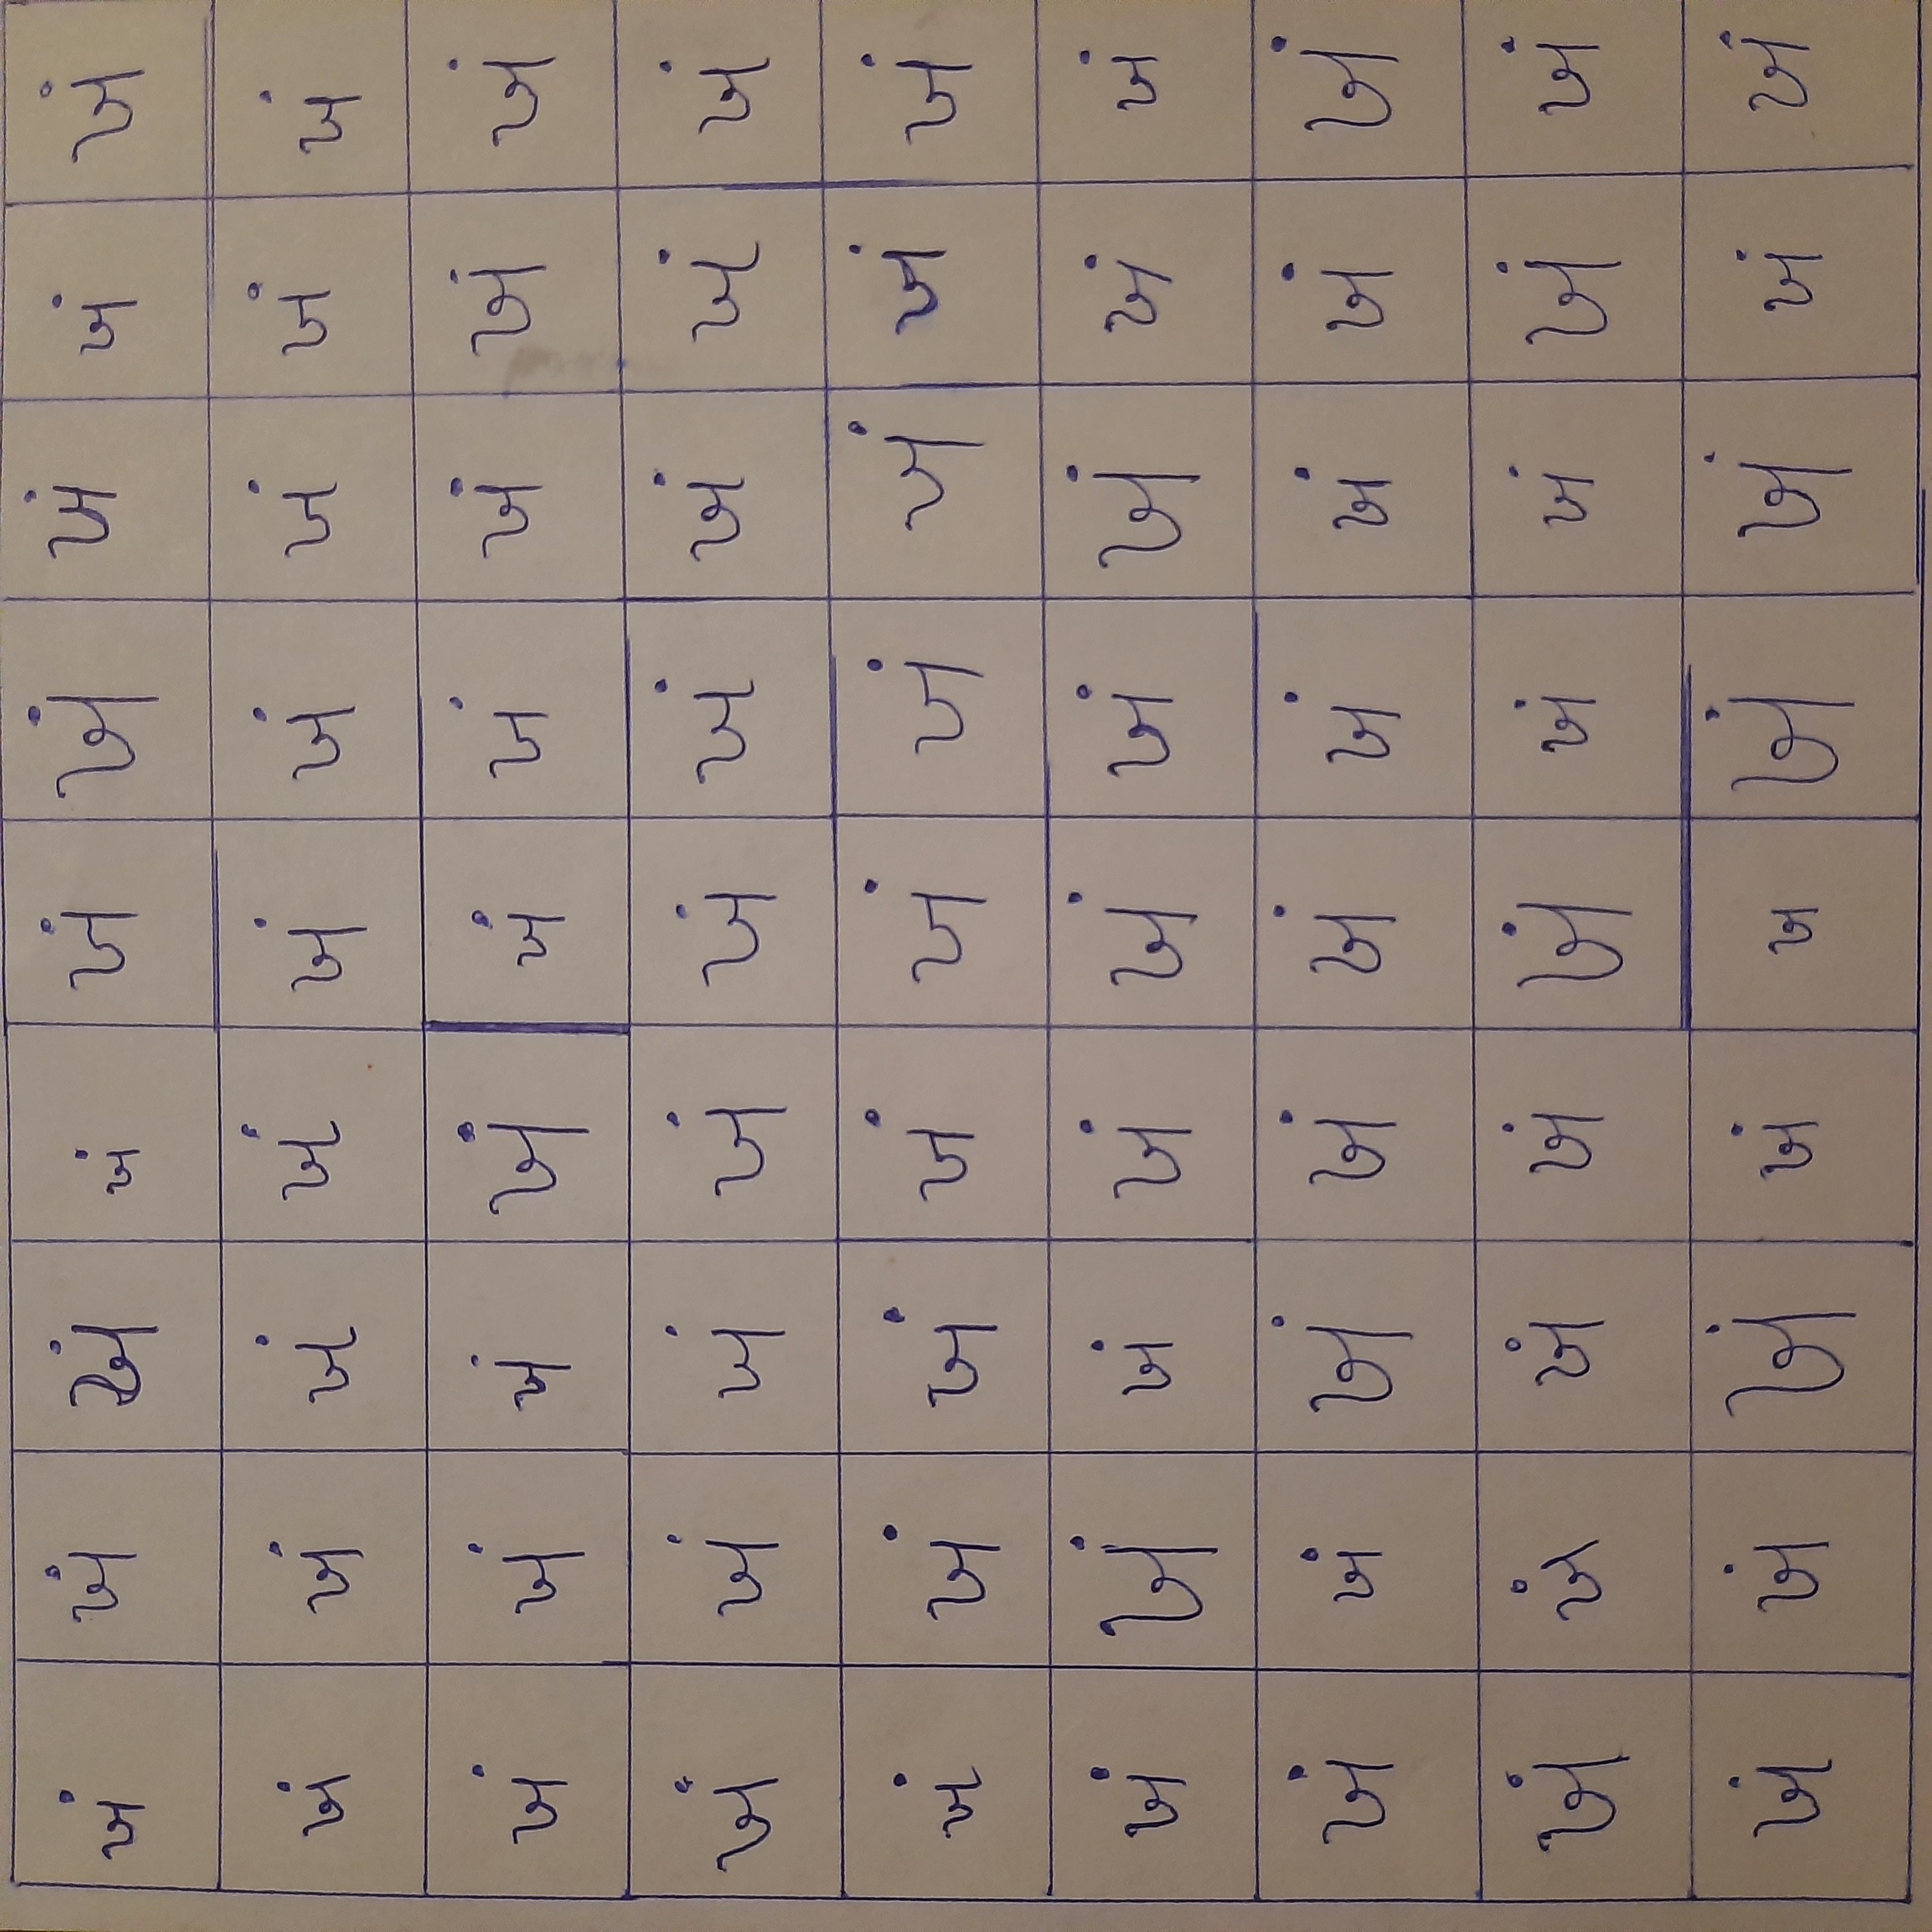 ખં ખં ખં ખં ખં ખં ખં ખં ખં
ખં ખં ખં ખં ખં ખં ખં ખં ખં
ખં ખં ખં ખં ખં ખં ખં ખં ખં
ખં ખં ખં ખં ખં ખં ખં ખં ખં
ખં ખં ખં ખં ખં ખં ખં ખં ખં
ખં ખં ખં ખં ખં ખં ખં ખં ખં
ખં ખં ખં ખં ખં ખં ખં ખં ખં
ખં ખં ખં ખં ખં ખં ખં ખં ખં
ખં ખં ખં ખં ખ ખં ખં ખં ખં